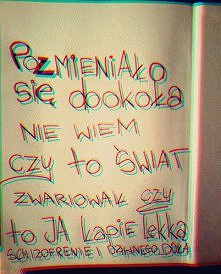 POZMIENIAŁO
się dookoła
NIE WIEM
czy to ŚWIAT
ZWARIOWAŁ czy
to JA ŁAPIE lekką
SCHIZOFRENIE I DAWNEGO DOŁA